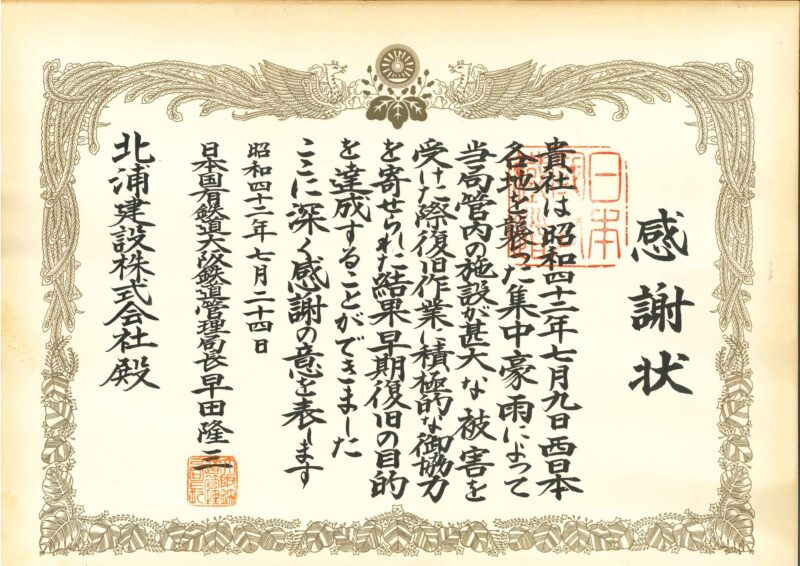 感謝状
貴社は昭和四十二年七月九日西日本
各地を襲った集中豪雨によって
当局管内の施設が甚大な被害を
受けた際復旧作業に積極的な御協力
を寄せられた結果早期復旧の目的
を達成することができました
ここに深く感謝の意を表します
昭和四十二年七月二十四日
日本国有鉄道大阪鉄道管理局長早田隆三
北浦建設株式会社殿
日本